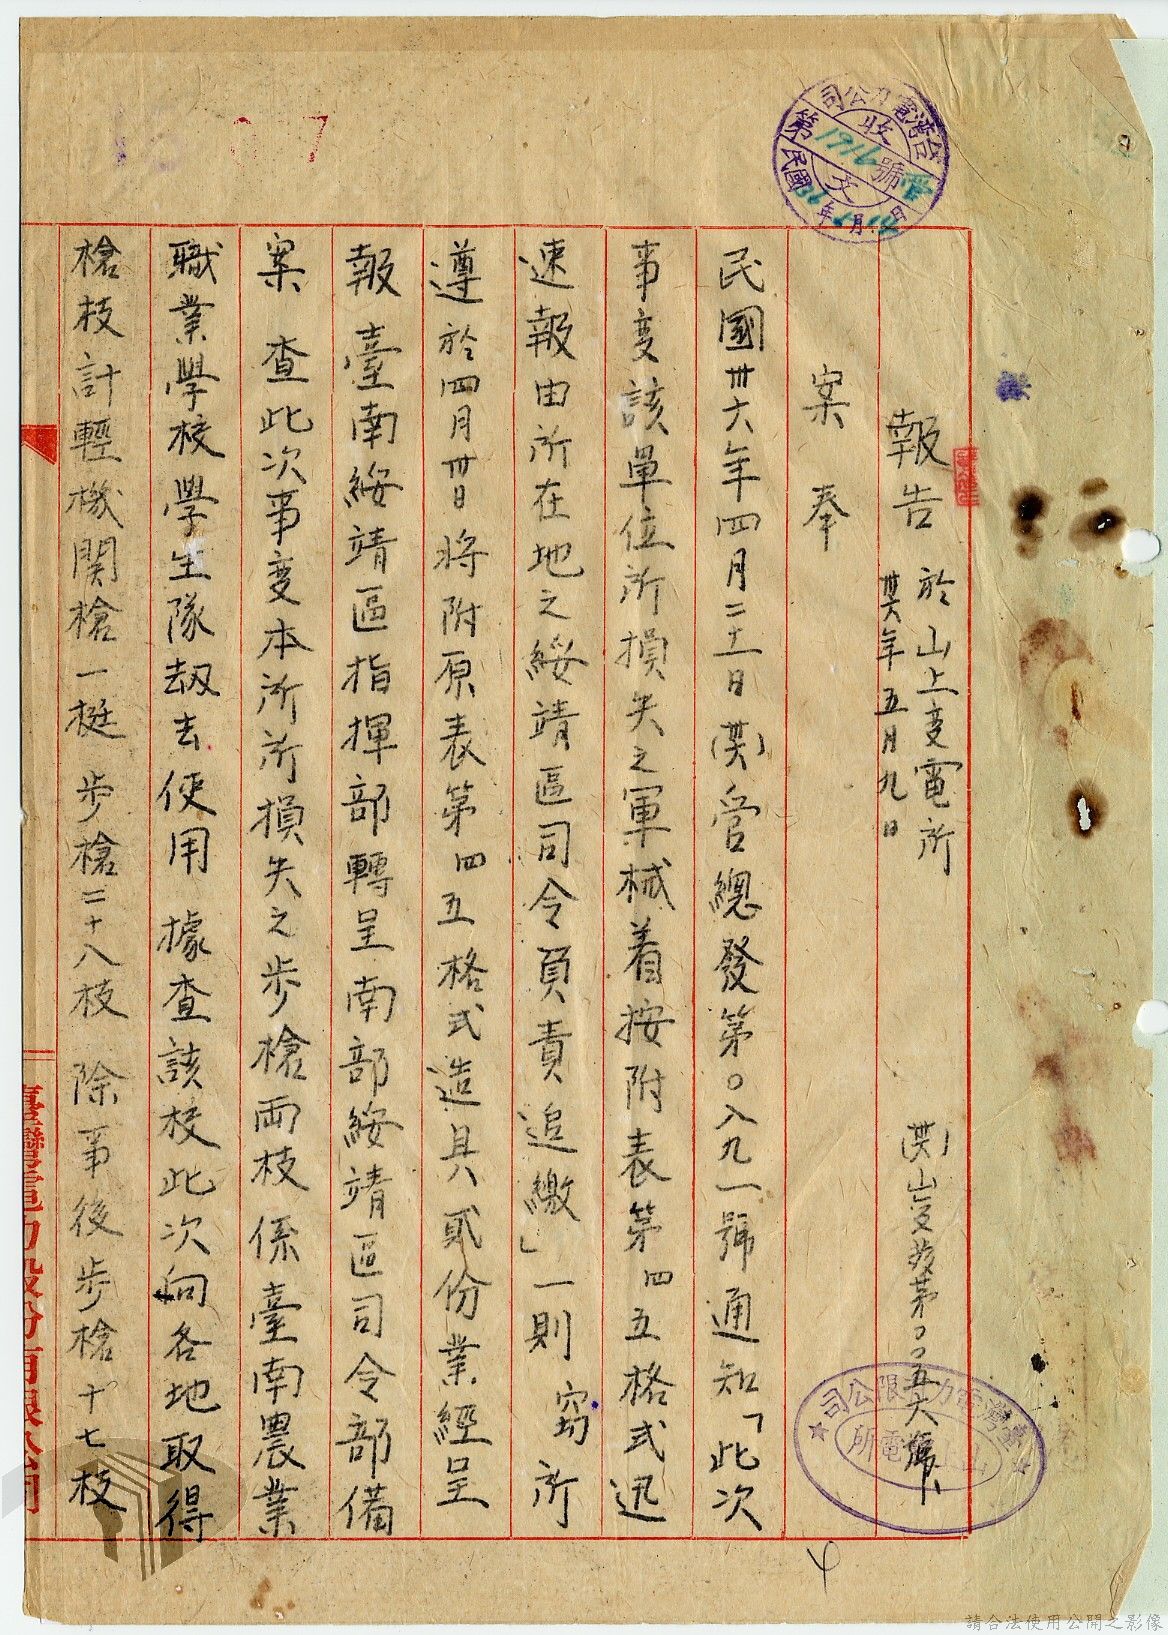 報告 於山上變電所
卅六年五月九日
(卅六)山變發第〇〇五六號
案奉
民國卅六年四月二十二日(卅六)營總發第〇八九一號通知「此次
事变該單位所損失之軍械着按附表第四五格式迅
速報由所在地之綏靖區司令負責追繳」一則 竊所
遵於四月卅日將附原表第四五格式造具貳份業經呈
報臺南綏靖區指揮部轉呈南部綏靖區司令部備
案 查此次事变本所所損失之步槍兩枝係臺南農業
職業學校學生隊刼去使用 據查該校此次向各地取得
槍枝計輕機関槍一挺 步槍二十八枝 除事後步槍十七枝
台灣電力公司
收文
第1916號
民國36年 月 日
臺灣電力有限公司
山上變電所
臺灣電力股份有限公司
07
請合法使用公開之影像